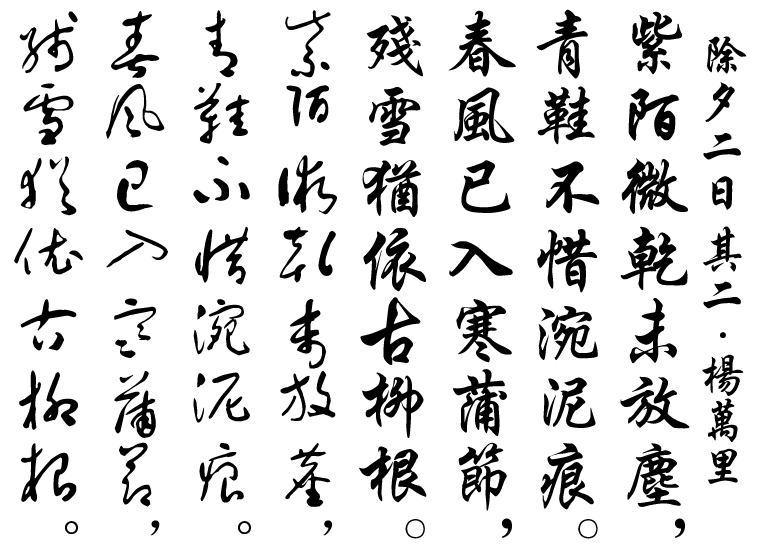 除夕二日其二·楊萬里
紫陌微乾未放塵，
青鞋不惜涴泥痕。
春風已入寒蒲節，
殘雪猶依古柳根。
紫陌微乾未放塵，
青鞋不惜涴泥痕。
春風已入寒蒲節，
殘雪猶依古柳根。